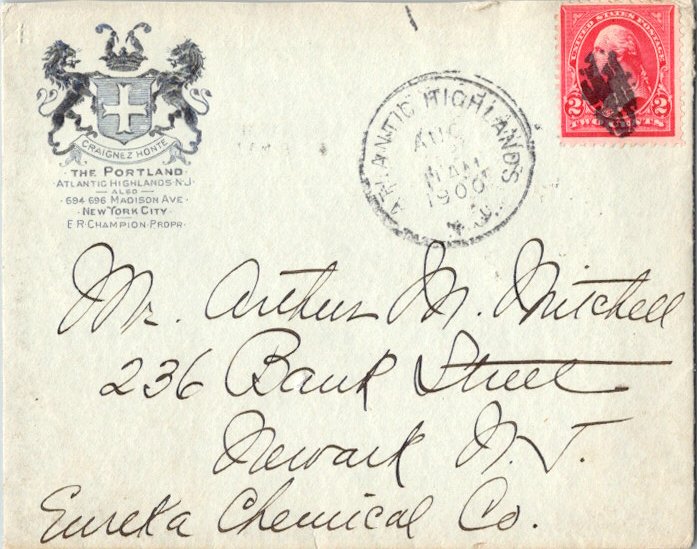 CRAIGNEZ HONTE
THE PORTLAND
ATLANTIC HIGHLANDS·N·J·
—ALSO—
·694·696 MADISON AVE·
·NEW YORK CITY·
E·R·CHAMPION·PROPR·
ATLANTIC HIGHLANDS
AUG
11 AM
1900
N.J.
UNITED STATES POSTAGE
2 2
Mr. Arthur M. Mitchell
236 Bank Street
Newark N.J.
Eureka Chemical Co.